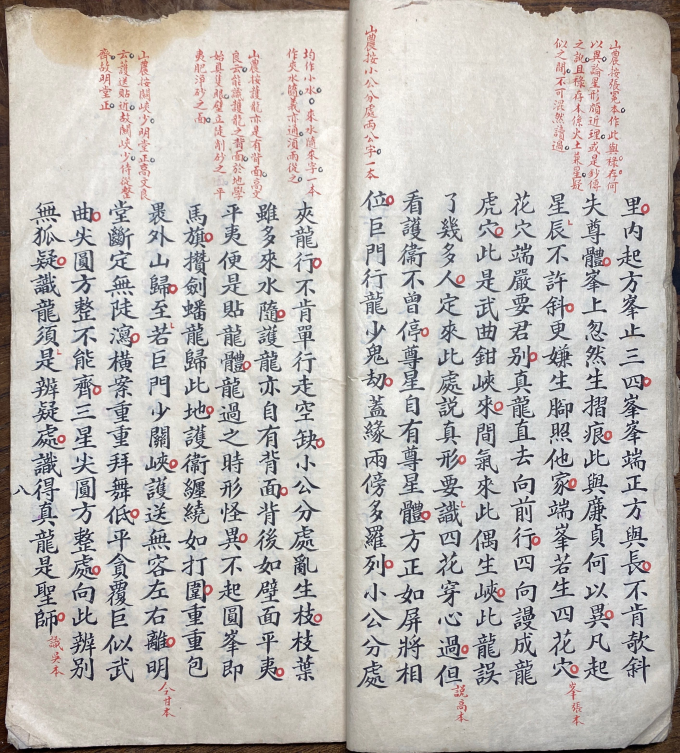 山農按張寬本作此與祿存何
以異論星形頗近理或是鈔傳
之說且祿存本係火土星疑
似之間不可混然讀過
里內起方峯止三四峯峯端正方與長不肯欹斜
失尊體峯上忽然生摺痕此與廉貞何以異凡起
星辰不許斜更嫌生腳照他家端峯若生四花穴
峯張本
花穴端嚴要君別真龍直去向前行四向謾成龍
虎穴此是武曲鉗峽來間氣來此偶生峽此龍誤
了幾多人定來此處說真形要識四花穿心過但
說高本
看護衛不曾停尊星自有尊星體方正如屏將相
山農按小公分處兩公字一本
位巨門行龍少鬼劫蓋緣兩傍多羅列小公分處
均作小水來水隨來字一本
作夾水隨義亦通須兩從之
夾龍行不肯單行走空缺小公分處亂生枝枝葉
山農按護龍亦是有背面高文
良云能識護龍之背面於地學
始真隻眼壁立陡削砂之平
夷肥淨砂之面
雖多來水隨護龍亦自有背面背後如壁面平夷
平夷便是貼龍體龍過之時形怪異不起圓峯即
馬旗攢劍蟠龍歸此地護衛纏繞如打圍重重包
山農按關峽少明堂正高文良
云護送貼近故關峽少侍從整
齊故明堂正
最外山歸至若巨門少關峽護送無容左右離明
今甘本
堂斷定無陡瀉橫案重重拜舞低平貪覆巨似武
曲尖圓方整不能齊三星尖圓方整處向此辨別
無狐疑識龍須是辨疑處識得真龍是聖師
識吳本
八